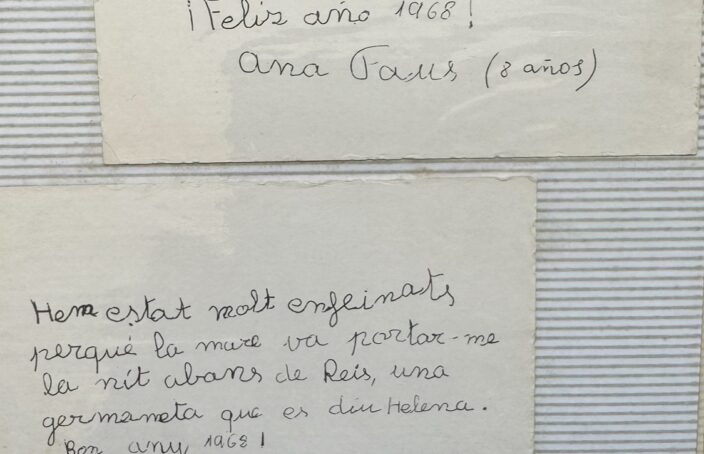 ¡Feliz año 1968!
Ana Faus (8 años)
Hem estat molt enfeinats
perqué la mare va portar-me
la nit abans de Reis, una
germaneta que es diu Helena.
Bon any, 1968!